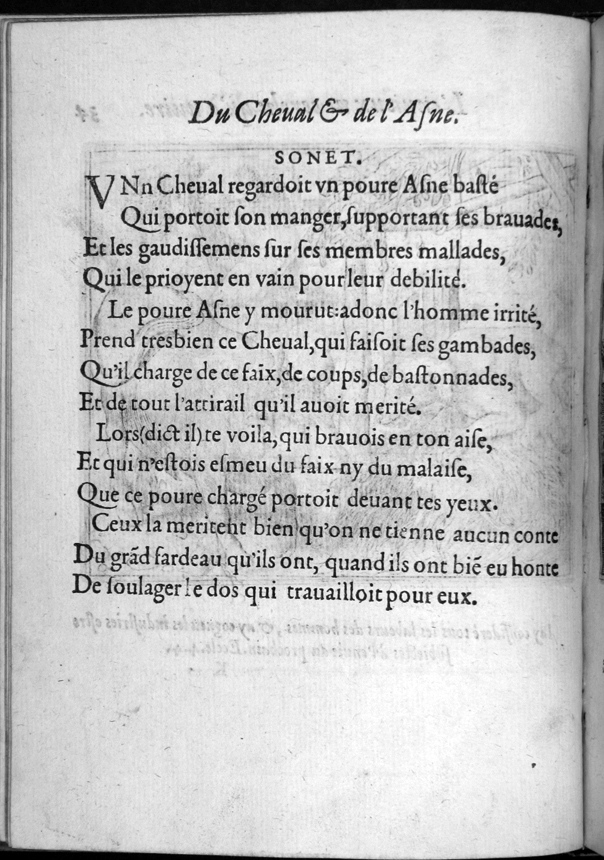 Du Cheual & de l'Aſne.
SONET.
VNn Cheual regardoit vn poure Aſne baſté
Qui portoit ſon manger, ſupportant ſes brauades,
Et les gaudiſſemens ſur ſes membres mallades,
Qui le prioyent en vain pour leur debilité.
Le poure Aſne y mourut: adonc l'homme irrité,
Prend tresbien ce Cheual, qui faiſoit ſes gambades,
Qu'il charge de ce faix, de coups, de baſtonnades,
Et de tout l'attirail qu'il auoit merité.
Lors (dict il) te voila, qui brauois en ton aiſe,
Et qui n'eſtois eſmeu du faix ny du malaiſe,
Que ce poure chargé portoit deuant tes yeux.
Ceux la meritent bien qu'on ne tienne aucun conte
Du grãd fardeau qu'ils ont, quand ils ont biẽ eu honte
De ſoulager le dos qui trauailloit pour eux.